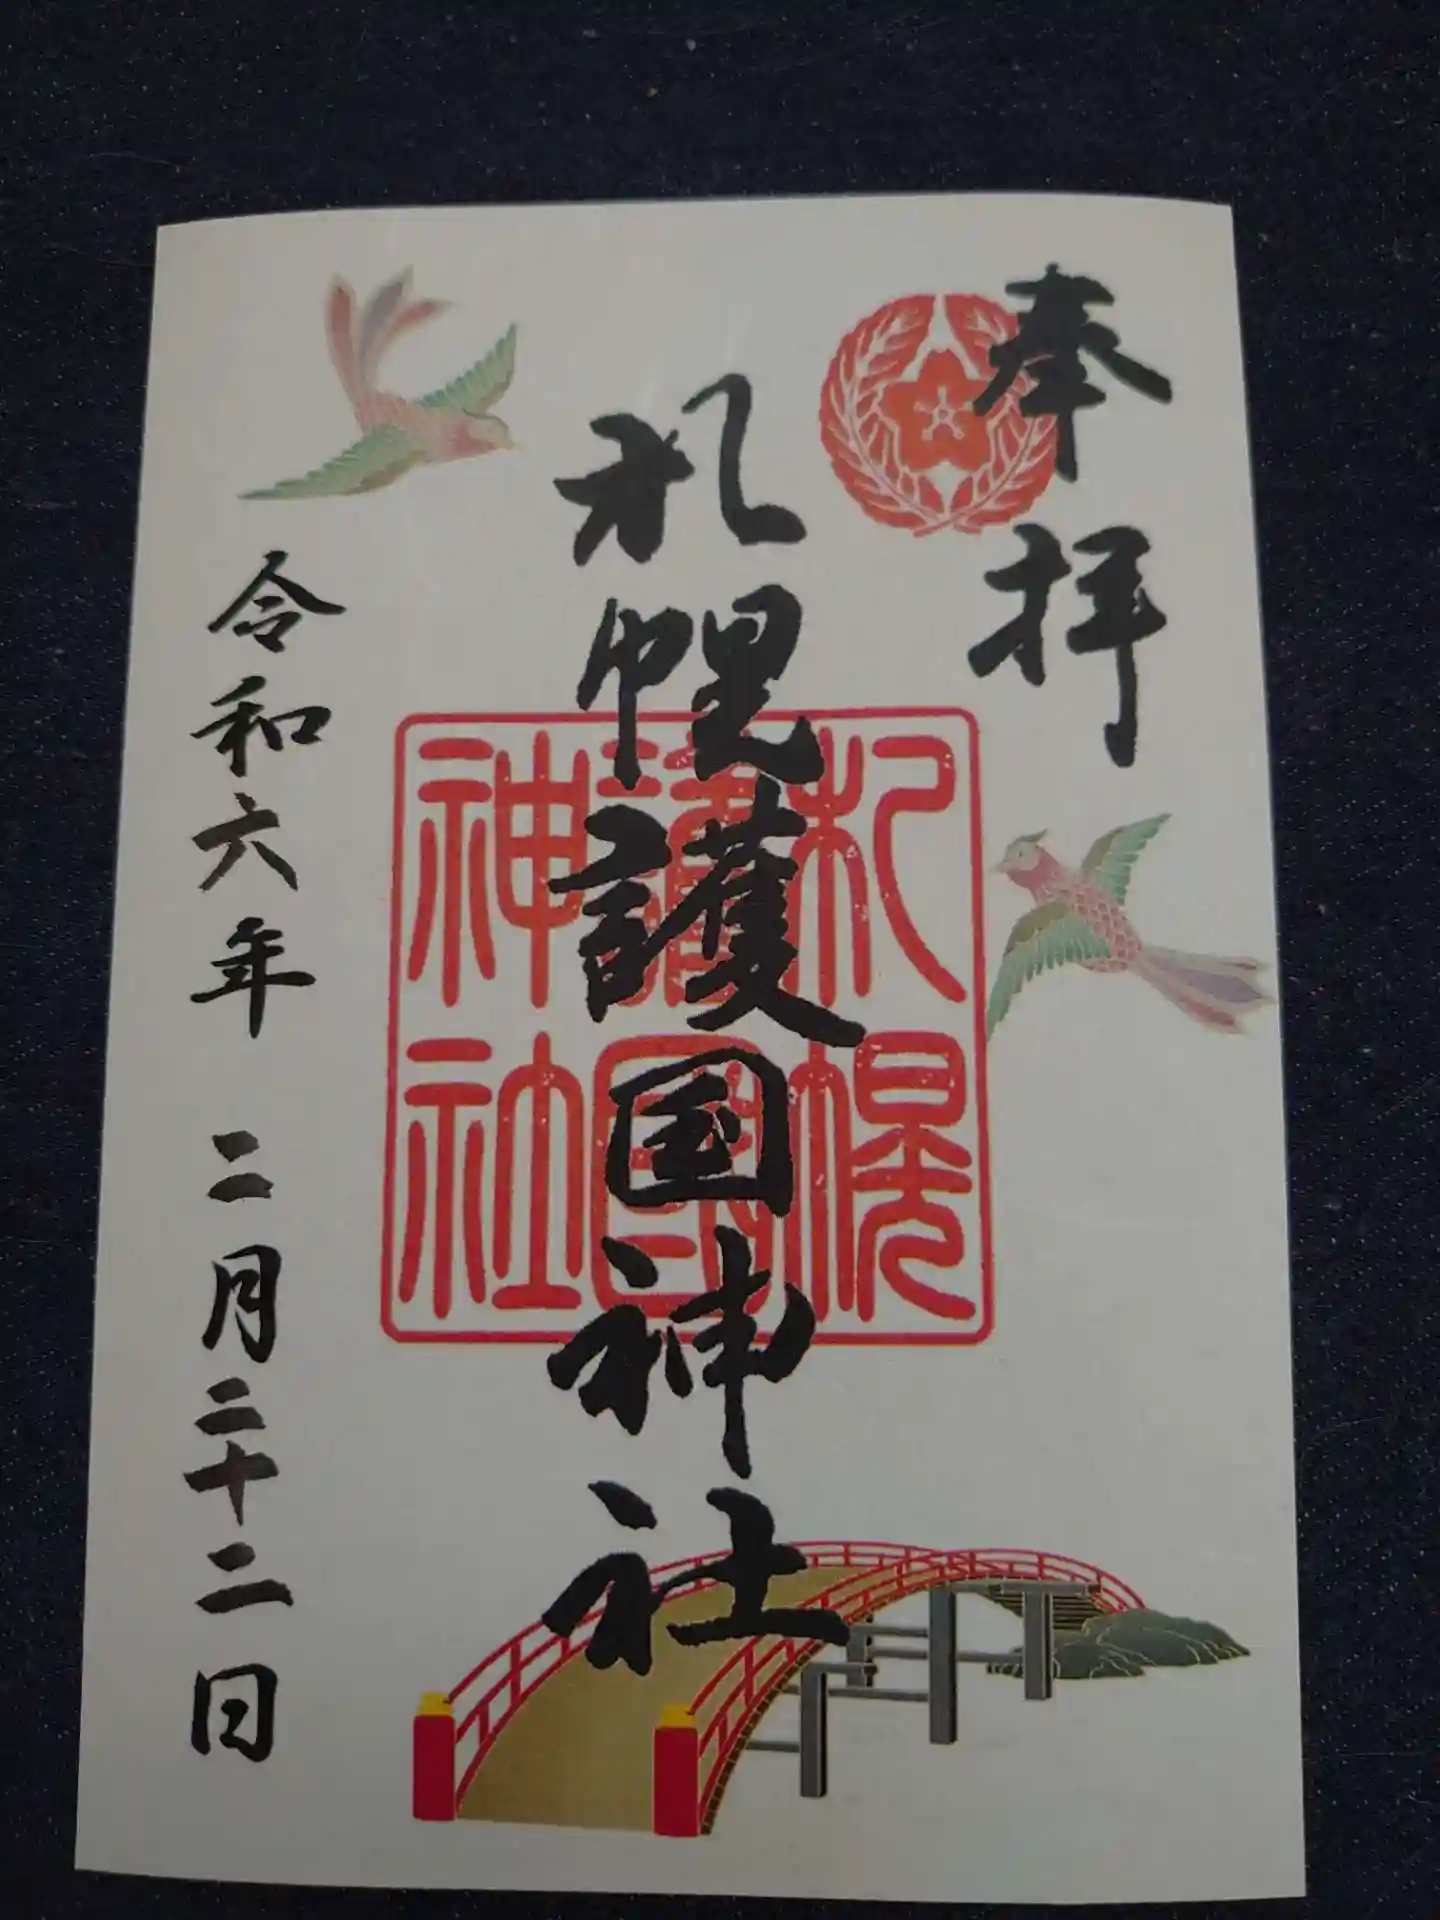 奉拝
札幌護国神社
札幌
護國
神社
令和六年 二月二十二日